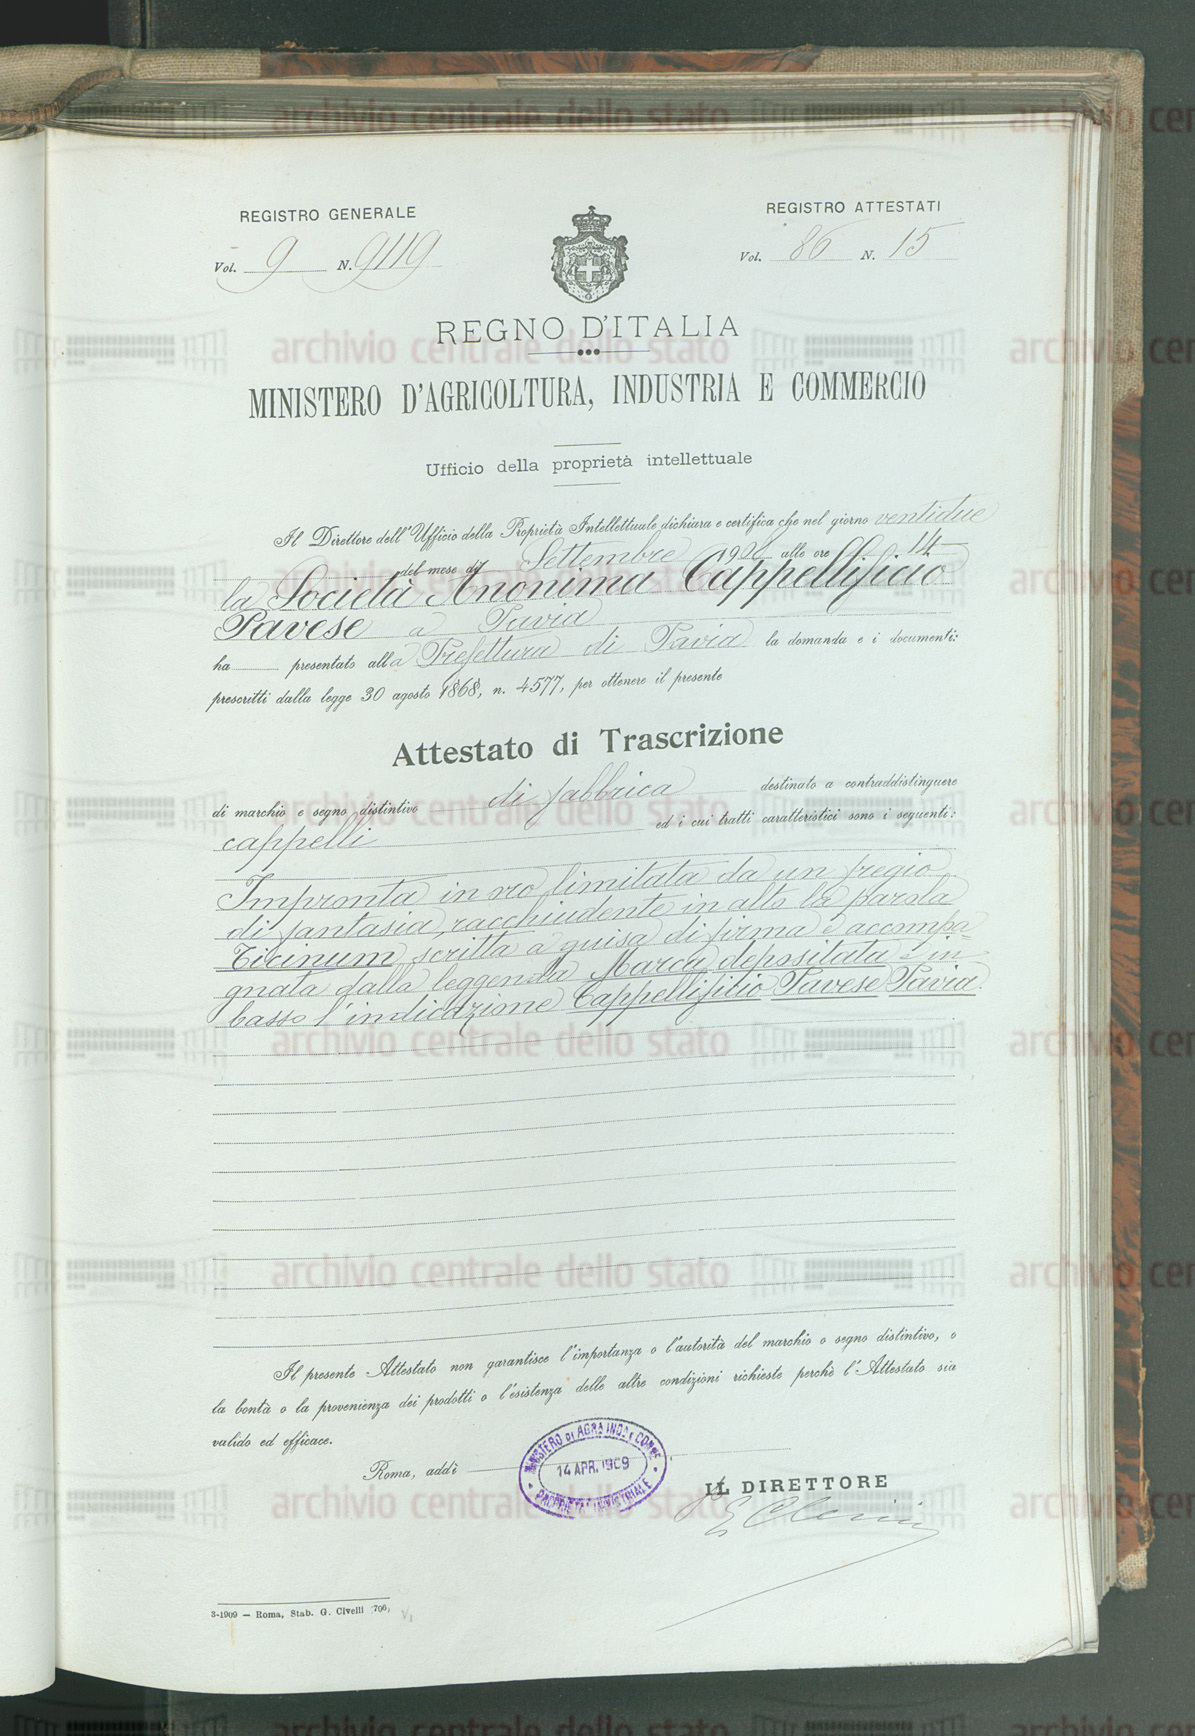 REGISTRO GENERALE
Vol. 9 N. 9119
REGISTRO ATTESTATI
Vol. 86 N. 15
REGNO D'ITALIA
MINISTERO D'AGRICOLTURA, INDUSTRIA E COMMERCIO
Ufficio della proprietà intellettuale
Il Direttore dell'Ufficio della Proprietà Intellettuale dichiara e certifica che nel giorno ventidue
del mese di Settembre 1908 alle ore 14
la Società Anonima Cappellificio
Pavese a Pavia
ha presentato alla Prefettura di Pavia la domanda e i documenti:
prescritti dalla legge 30 agosto 1868, n. 4577, per ottenere il presente
Attestato di Trascrizione
di marchio e segno distintivo di fabbrica destinato a contraddistinguere
cappelli ed i cui tratti caratteristici sono i seguenti:
Impronta in nero limitata da un fregio
di fantasia, racchiudente in alto la parola
Ticinum scritta a guisa di firma e accompa=
gnata dalla leggenda Marca depositata e in
basso l'indicazione Cappellificio Pavese Pavia.
Il presente Attestato non garantisce l'importanza o l'autorità del marchio o segno distintivo, o
la bontà o la provenienza dei prodotti o l'esistenza delle altre condizioni richieste perchè l'Attestato sia
valido ed efficace.
Roma, addì
MINISTERO DI AGR.A IND.A E COMM.
14 APR. 1909
PROPRIETA' INDUSTRIALE
IL DIRETTORE
3-1909 — Roma, Stab. G. Civelli 706,
archivio centrale dello stato